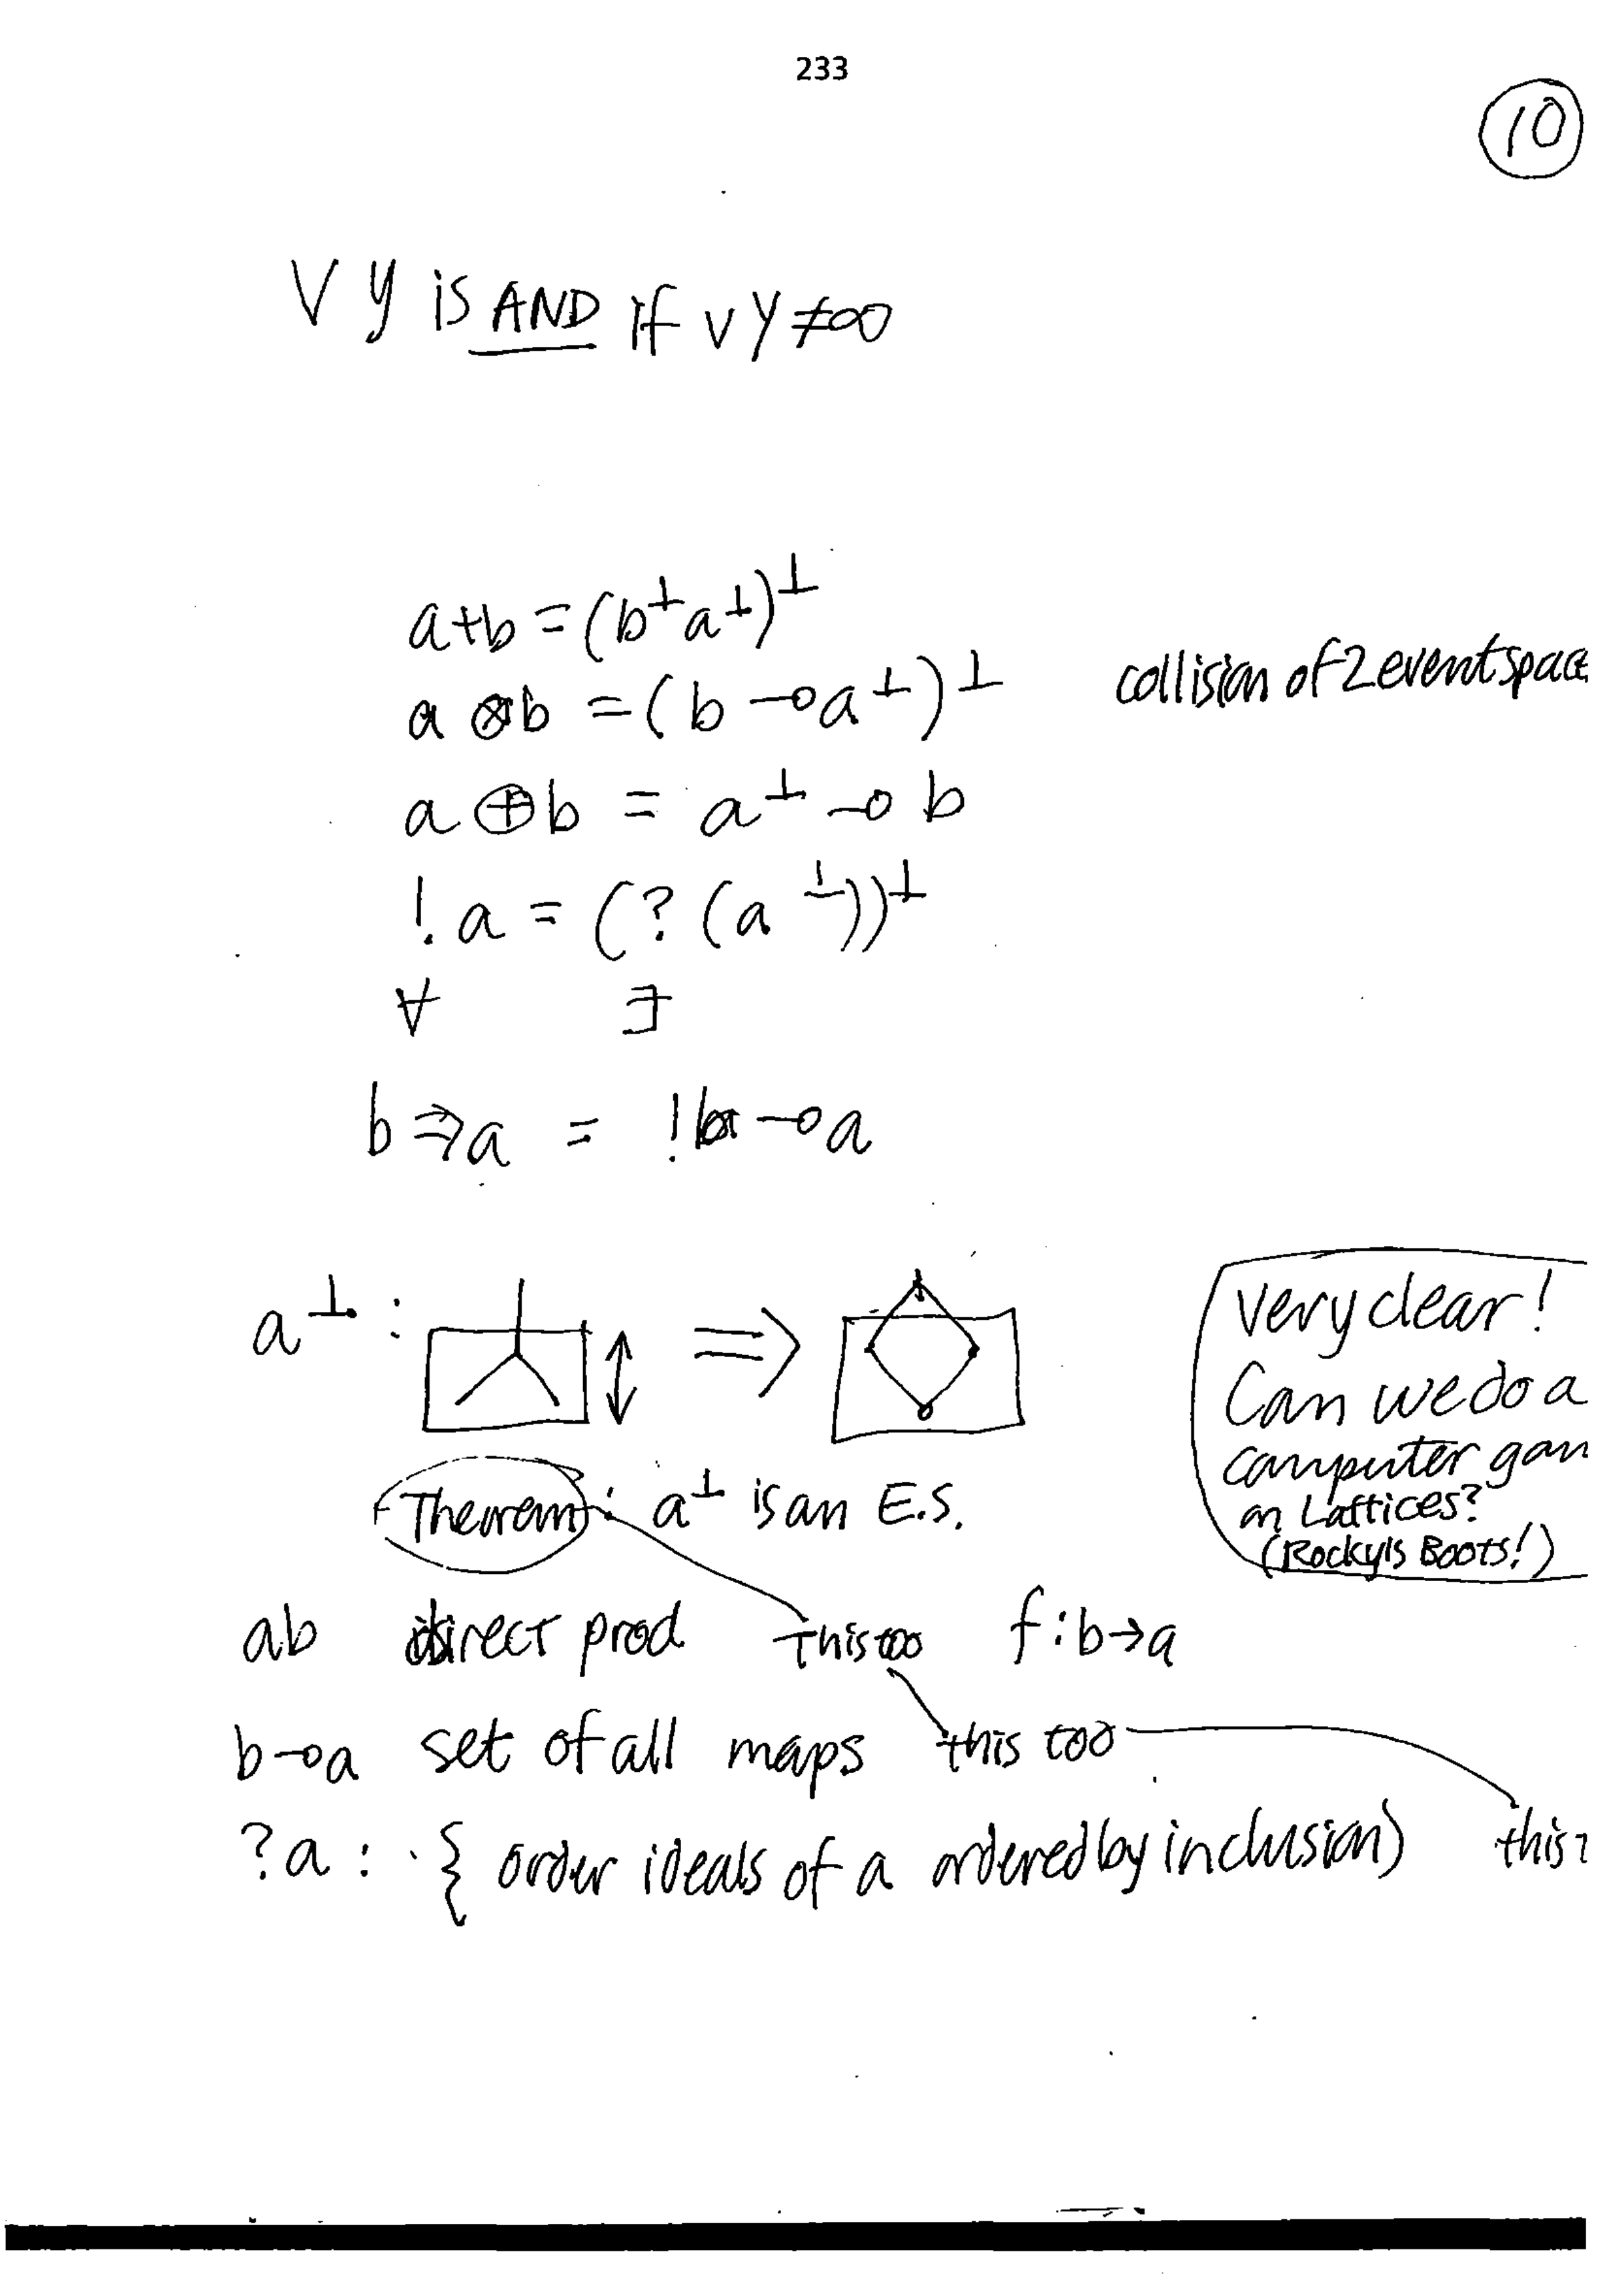 233
10
∨ y is AND if ∨ Y ≠ ∞
a+b = (b⊥a⊥)⊥
a ⊗ b = (b ⊸ a⊥)⊥ collision of 2 event space
a ⊕ b = a⊥ ⊸ b
!a = (?(a⊥))⊥
∀ ∃
b ⇒ a = !b ⊸ a
a⊥ : ⇒
Very clear!
Can we do a
computer gam
on Lattices?
(Rocky's Boots!)
Theorem : a⊥ is an E.S.
ab direct prod This too f : b → a
b ⊸ a set of all maps this too
?a : { order ideals of a ordered by inclusion) this